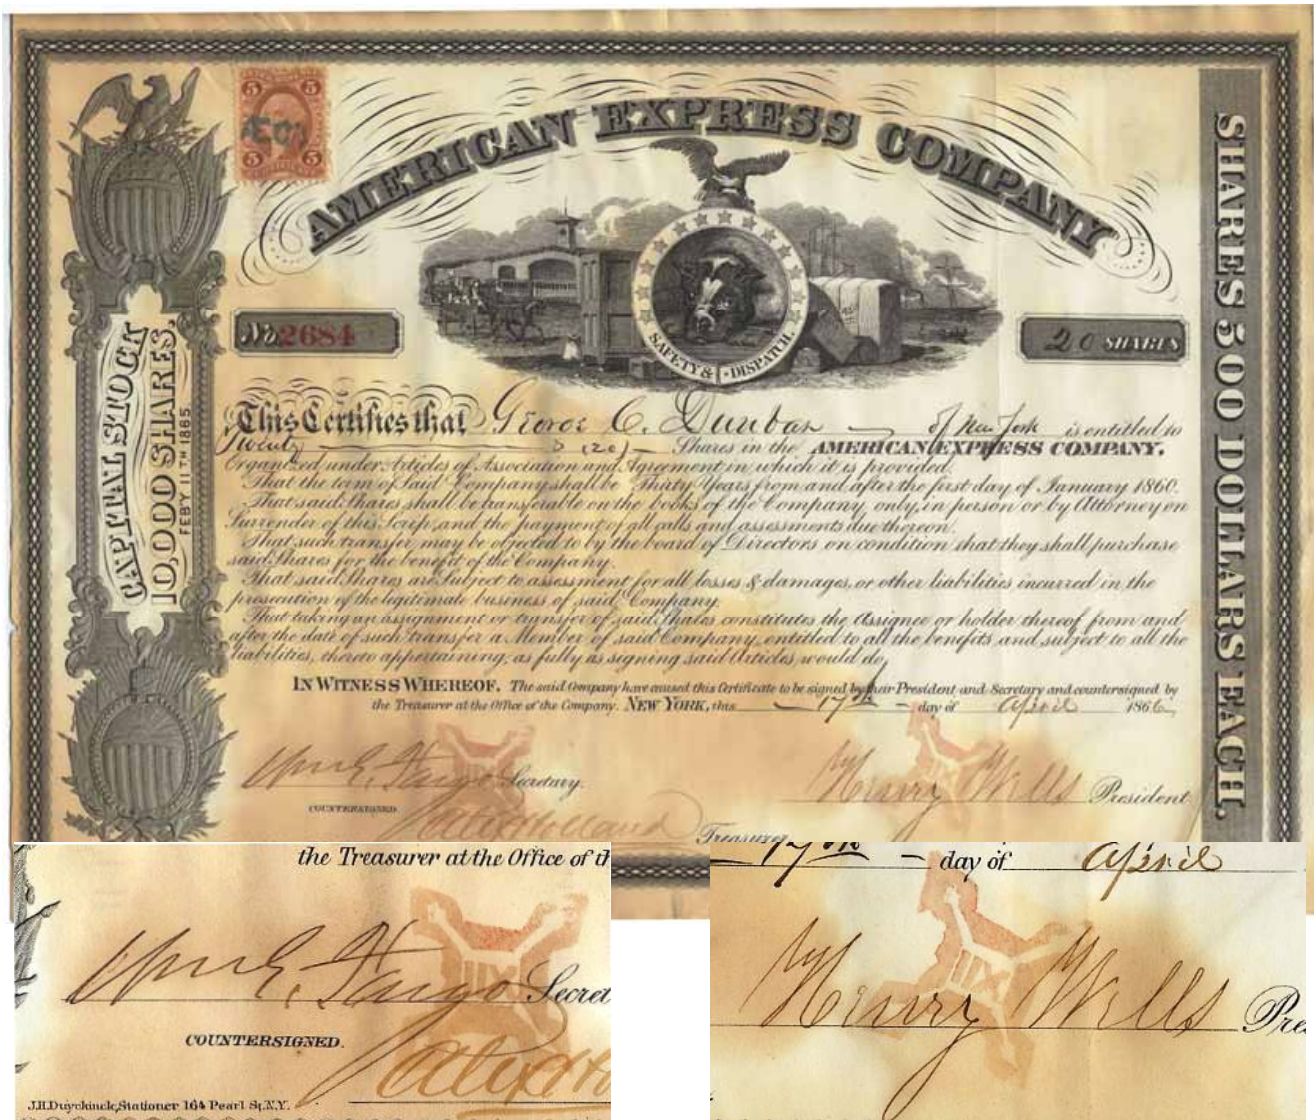 5 5
5 5
AMERICAN EXPRESS COMPANY
SAFETY & DISPATCH.
No 2684
20 SHARES
CAPITAL STOCK
10,000 SHARES.
FEBY 11TH 1865
SHARES 500 DOLLARS EACH.
This Certifies that George C. Dunbar of New York is entitled to
Twenty (20) Shares in the AMERICAN EXPRESS COMPANY.
Organized under Articles of Association and Agreement in which it is provided.
That the term of Said Company shall be Thirty Years from and after the first day of January 1860.
That said Shares shall be transferable on the books of the Company only, in person or by Attorney on
Surrender of this Scrip, and the payment of all calls and assessments due thereon.
That such transfer may be objected to by the board of Directors on condition that they shall purchase
said Shares for the benefit of the Company.
That said Shares are Subject to assessment for all losses & damages, or other liabilities incurred in the
prosecution of the legitimate business of said Company.
That taking an assignment or transfer of said Shares constitutes the Assignee or holder thereof from and
after the date of such transfer a Member of said Company, entitled to all the benefits and subject to all the
liabilities, thereto appertaining, as fully as signing said Articles would do,
IN WITNESS WHEREOF. The said Company have caused this Certificate to be signed by their President and Secretary and countersigned by
the Treasurer at the Office of the Company. NEW YORK, this 17th day of April 1866
Wm G. Fargo Secretary. Henry Wells President
COUNTERSIGNED.
Alex Holland Treasurer
the Treasurer at the Office of th
Wm G. Fargo Secret
COUNTERSIGNED.
Alex Ho
J.H. Duyckinck, Stationer 164 Pearl St. N.Y.
17th day of April
Henry Wells Pre